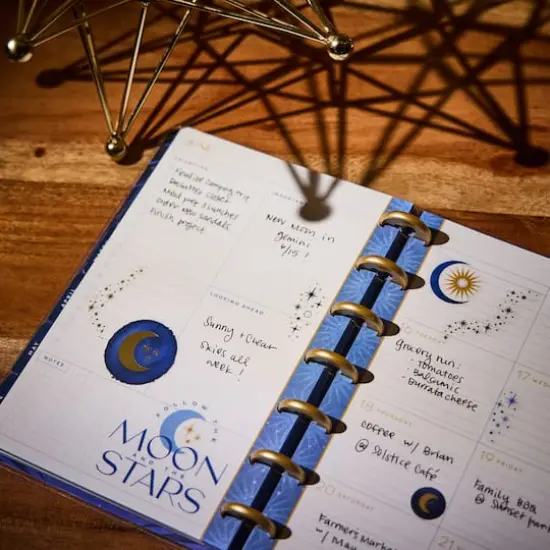 PRIORITIES
Finalize camping trip
Declutter closet
Meal prep 3 lunches
Order new sandals
Finish project
New Moon in
gemini
6/15 !
LOOKING AHEAD
Sunny + Clear
skies all
week !
APRIL
MAY
NOTES
FOLLOW THE
MOON
AND THE
STARS
TUESDAY
grocery run:
- Tomatoes
- Balsamic
- Burrata cheese
17 WED
18 THURSDAY
Coffee w/ Brian
@ Solstice Café
19 FRIDAY
Family BBQ
@ Sunset
20 SATURDAY
Farmer's Market
w/
21